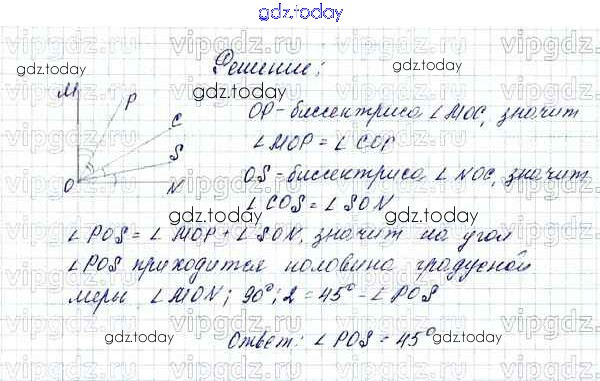 gdz.today
Решение:
gdz.today gdz.today
M P C S O N
OP - биссектриса ∠MOC, значит
∠MOP = ∠COP
OS - биссектриса ∠NOC, значит
∠COS = ∠SON
gdz.today gdz.today
∠POS = ∠MOP + ∠SON, значит на угол
∠POS приходится половина градусной
меры ∠MON; 90° : 2 = 45° - ∠POS
gdz.today gdz.today
Ответ: ∠POS = 45°
gdz.today
vipgdz.ru